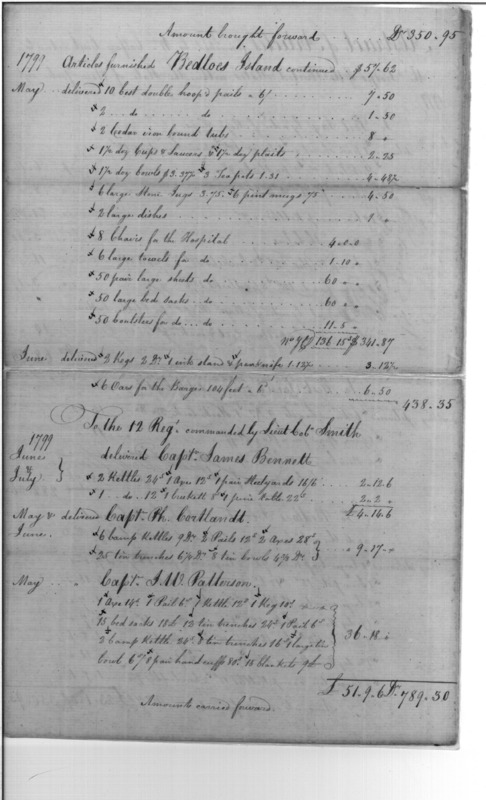 Amount brought forward Dr 350-95
1799 Articles furnished Bedloes Island continued $57-62
May delivered 10 best double hoop'd pails 6/ 7-50
2 do do 1-30
2 Cedar iron bound tubs 8
1½ doz Cups & Saucers & 1½ doz plaits 2-25
1½ doz bowls $3.37½ 3 Tea pots 4-48½
6 large Jugs 3.75 6 pint mugs 75 4-50
2 large dishes 1
8 Chairs for the Hospital 4-0-0
6 large towels for do 1-10
50 pair large sheets do 60
50 large bed sacks do 60
50 boulsters for do do 11-5
136 15 $341-87
June delivered 2 Kegs 1 ink stand & penknife 1.12½ 3-12½
6 Oars for the Barge 104 feet 6-50
438-35
To the 12 Regt commanded by Lieut Col Smith
1799
June & July delivered Capt. James Bennett
2 Kettles 24s 1 Axe 12s 1 pair Steelyards 16/6 2-12-6
1 do 12s 1 buckett 1 pair 22s 2-2
£4-14-6
May & June delivered Capt. Ph. Cortlandt
6 Camp Kettles 9 Dr 2 Pails 12s 2 Axes 28s
25 tin trenches 6¼ Dr 8 tin bowls 9-17
May Capt. J. W. Patterson
1 Axe 14s 1 Pail 6s 1 Kettle 12s 1 Keg 10s
15 bed sacks 12 tin trenches 24s 1 Pail 6s
2 Camp Kettle 24s tin trenches 16s 1 large tin
bowl 6s 8 pair handcuffs 80s 18 blankets 36-18
£51.9.6 Dr 789-30
Amount carried forward